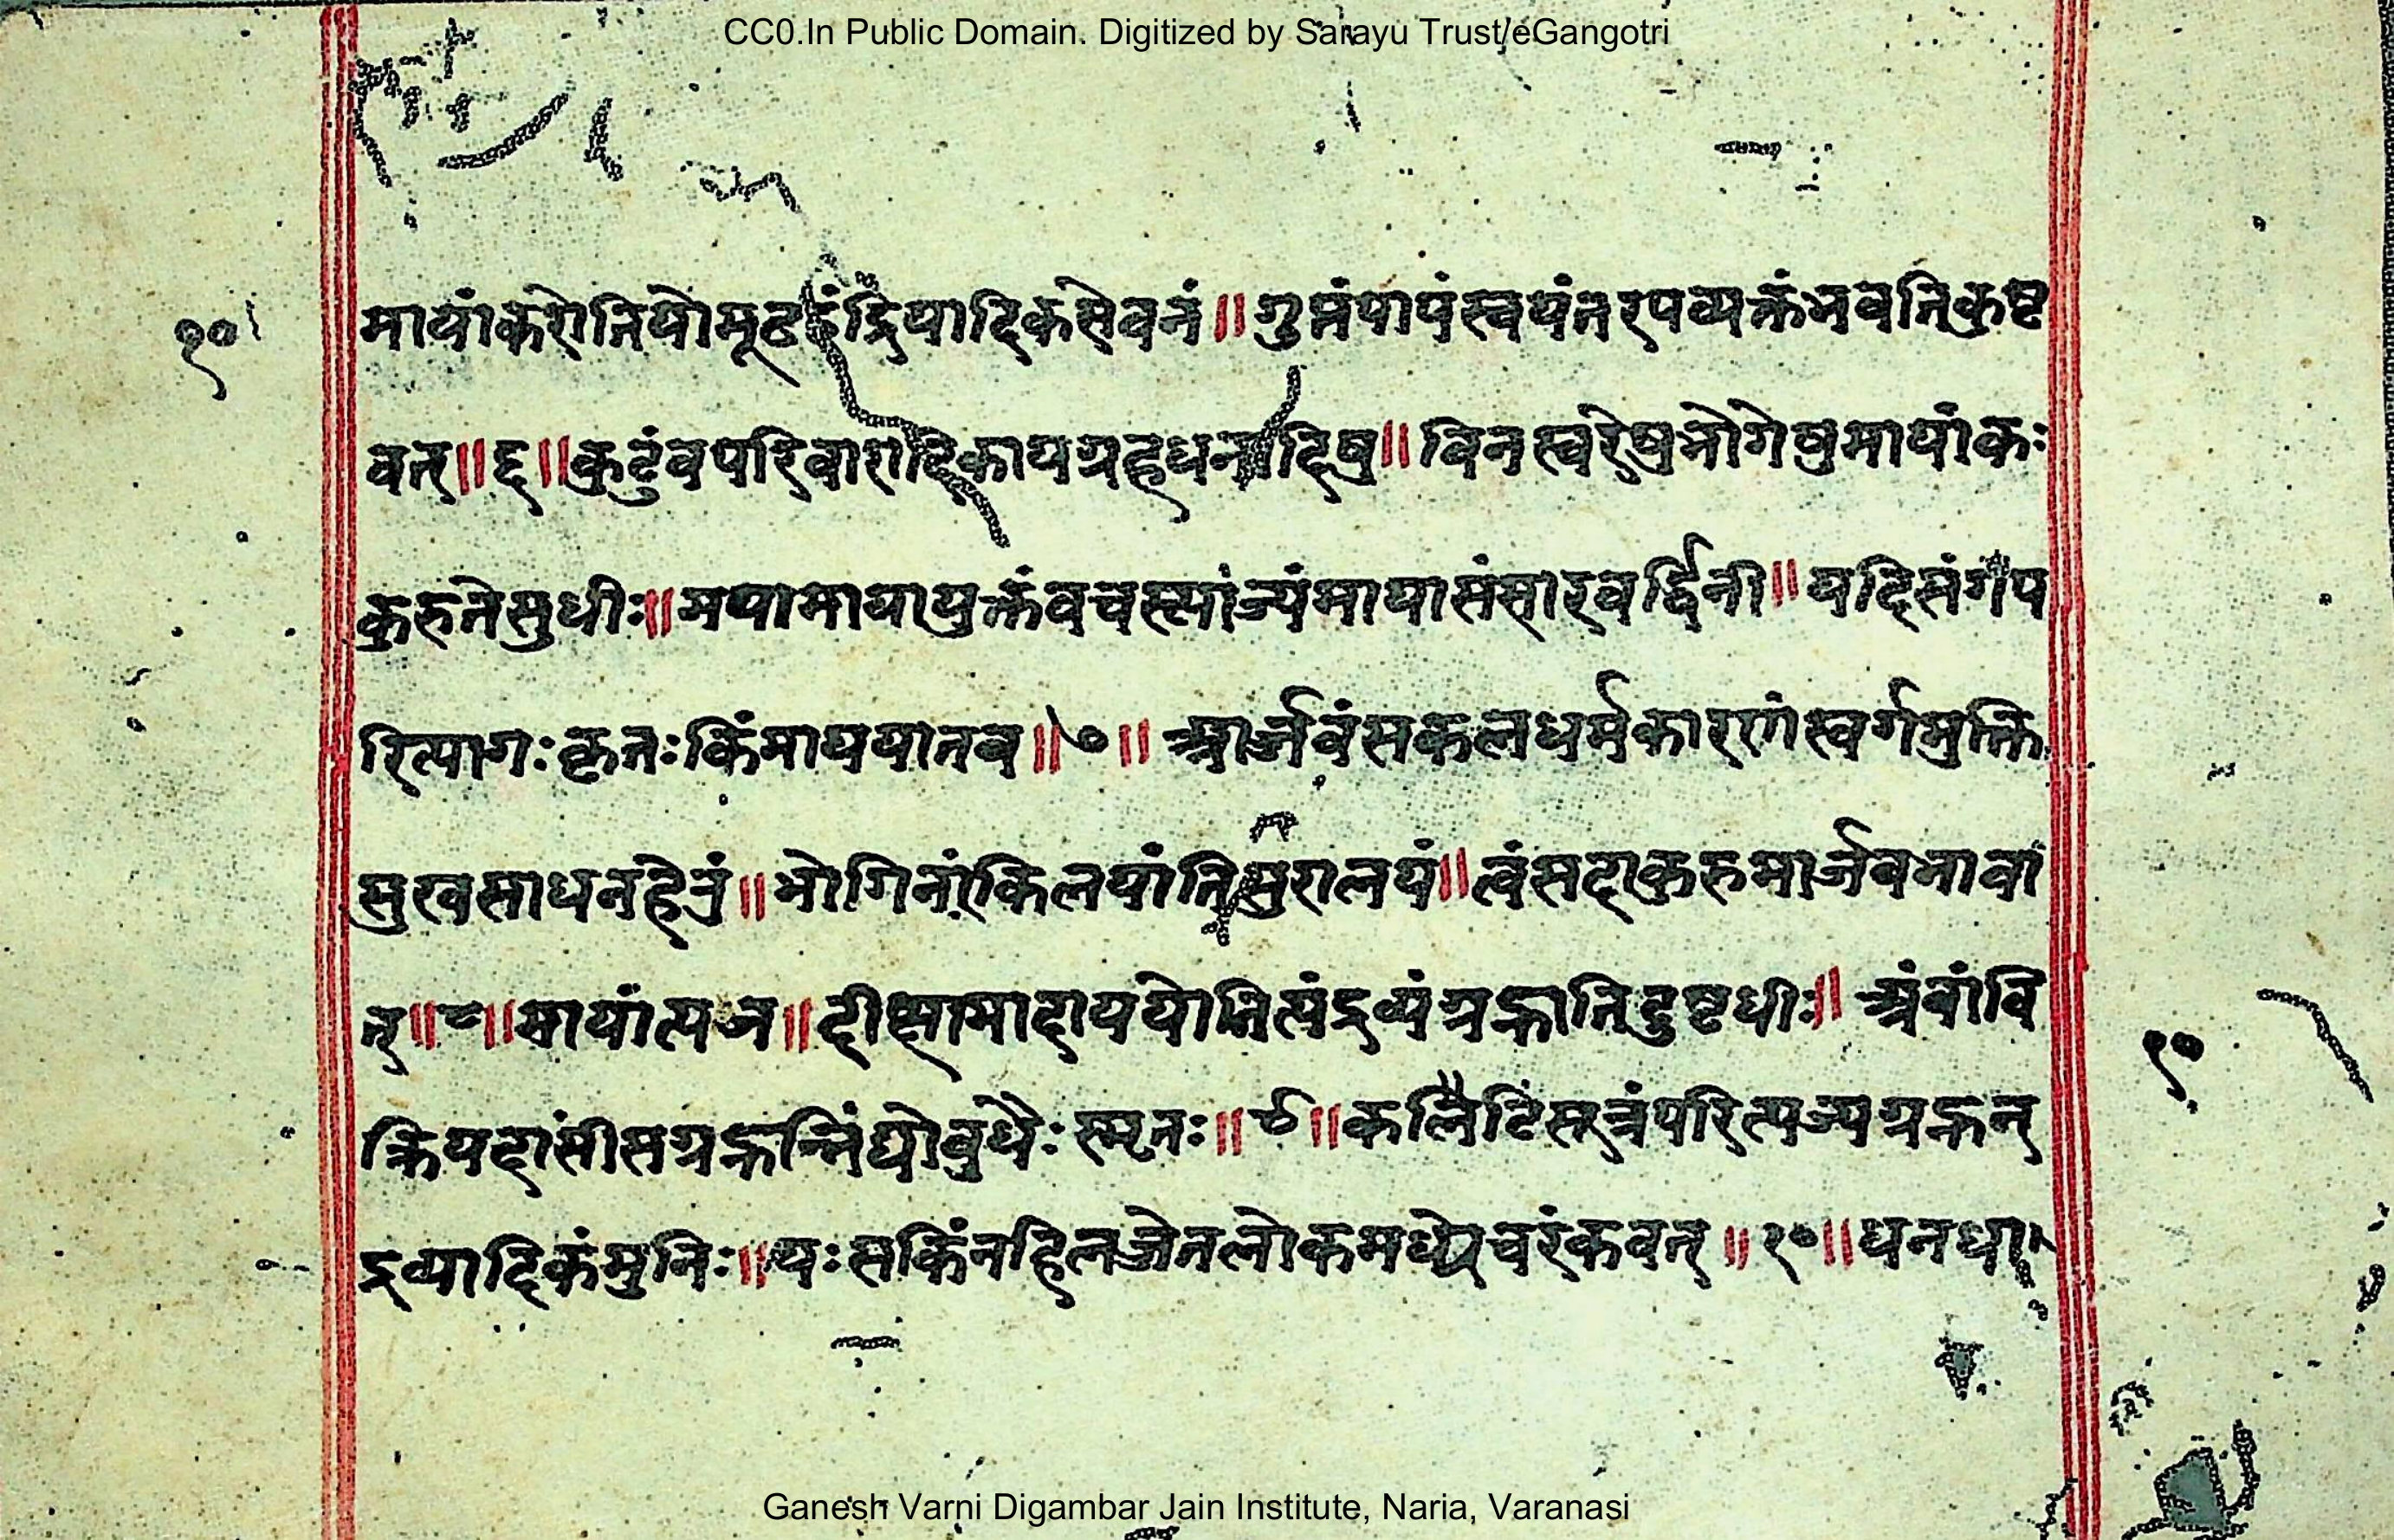 CC0.In Public Domain. Digitized by Sarayu Trust/eGangotri
१०
मायांकरोतियोमूढइंद्रियादिकसेवनं॥गुप्तंपापंस्वयंतस्यव्यक्तंभवतिकुष्ट
वत्॥६॥कुटुंवपरिवारादिकायग्रहधनादिषु॥विनस्वरेषुभोगेषुमायांकः
कुरुतेसुधीः॥मयामायायुक्तंवचस्त्याज्यंमायासंसारवर्द्धिनी॥यदिसंगप
रित्यागःकृतःकिंमाययातव॥७॥आर्जवंसकलधर्मकारणंस्वर्गमुक्ति
सुखसाधनहेतुं॥भोगिनांकिलयांतिसुरालयं॥त्वंसदाकुरुमार्जवभावा
त्॥८॥मायांत्यज॥दीक्षामादाययोनित्यंद्रव्यंग्रह्णातिदुष्टधीः॥अंवांवि
क्रियदासींसग्रह्णन्निंद्योवुधैःस्मृतः॥९॥कलैटिसूत्रंपरित्यज्यग्रह्णन्
१०
द्रव्यादिकंमुनिः॥यःसकिंनहिलज्जेतलोकमध्येचरंकवत्॥१०॥धनधा
Ganesh Varni Digambar Jain Institute, Naria, Varanasi